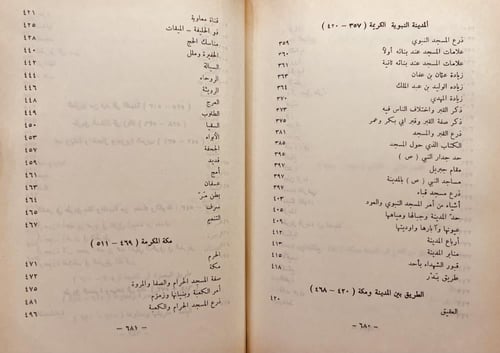 المدينة النبوية الكريمة (٣٥٧ – ٤٢٠)
ذرع المسجد النبوي ٣٥٩
علامات المسجد عند بنائه أولاً ٣٦٠
علامات المسجد عند بنائه ثانية ٣٦١
زيادة عثمان بن عفان ٣٦٣
زيادة الوليد بن عبد الملك ٣٦٤
زيادة المهدي ٣٧٠
ذكر القبر واختلاف الناس فيه ٣٧٣
ذكر صفة القبر وقبر ابي بكر وعمر ٣٧٥
ذرع القبر والمسجد ٣٨١
الكتاب الذي حول المسجد
حد جدار النبي (ص)
مقام جبريل
مساجد النبي (ص) بالمدينة ٣٩٧
ذرع مسجد قباء ٣٩٧
أشياء من أمر المسجد النبوي والعود
حدّ المدينة وجبالها ومياهها
عيونها وآبارها واوديتها
أرباع المدينة
منابر المدينة ٤١٥
قبور الشهداء بأحد ٤١٨
طريق بَدْر
الطريق بين المدينة ومكة (٤٢٠ – ٤٦٨)
العقيق ٤٢٠
– ٦٨٠ –
قناة معاوية ٤٢١
ذو الحليفة – الميقات
مناسك الحج ٤٢٨
الحفيرة وملل ٤٤٠
السيالة ٤٤٢
الروحاء ٤٤٤
الرويثة ٤٤٤
العرج
الطلوب ٤٤٩
السقيا ٤٥٠
الأبواء ٤٥٣
الجحفة ٤٥٧
قديد ٤٥٩
أمج ٤٦١
عسفان ٤٦٣
بطن مَرّ ٤٦٤
سرف ٤٦٥
التنعيم ٤٦٧
مكة المكرمة (٤٦٩ – ٥١١)
الحرم ٤٧١
مكة ٤٧٢
صفة المسجد الحرام والصفا والمروة ٤٧٥
أمر الكعبة وبنيانها وزمزم ٤٨١
ذرع المسجد الحرام والكعبة ٤٩٦
– ٦٨١ –